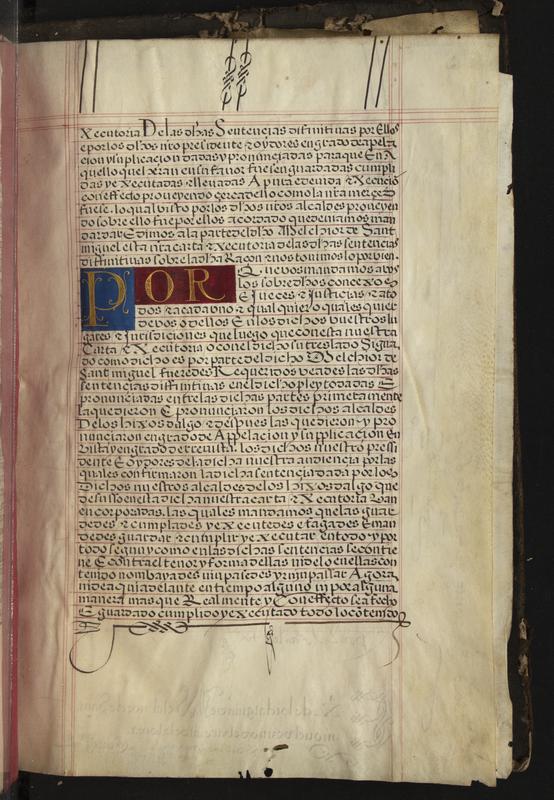 Xecutoria De las dhas Sentencias difinitivas por Ellos
e por los dhos nro presidente & oydores en grado de apela
cion y suplicacion dadas y pronunciadas para que En A
quello quel xeran en su fabor fuesen guardadas cumpli
das y executadas & llevadas A pura e devida & xecucio
con effecto proveyendo cerca dello como la nra merced
fuese. lo qual visto por los dhos nros alcaldes proveyen
do sobre ello fue por ellos acordado que deviamos man
dar dar E dimos a la parte del dho Melchior de Sant
miguel esta nra carta & xecutoria de las dhas sentencias
diffinitivas sobre la dha Racon & nos tovimos lo por bien.
POR Que vos mandamos a vos
los sobre dhos concexo e
E Jueces & Justicias & a to
dos & a cada uno & qual quier o quales quier
de vos o dellos E n los dichos vuestros lu
gares & jurisdiciones que luego que con esta nuestra
Carta & Xecutoria o con el dicho su treslado Signa
do como dicho es por parte del dicho Melchior de
Sant miguel fueredes Requeridos veades las dhas
sentencias diffinitivas en el dicho pleyto dadas E
pronunciadas entre las dichas partes primeramente
la que dieron E pronunciaron los dichos alcaldes
De los hixos dalgo & despues las que dieron y pro
nunciaron en grado de Appelacion y suplicacion En
vista y en grado de rrevista. los dichos nuestro presi
dente E oydores de la dicha nuestra audiencia por las
quales confirmaron la dicha sentencia dada por los
Dichos nuestros alcaldes de los hixos dalgo que
de suso en esta dicha nuestra carta & Xecutoria van
encorporadas. las quales mandamos que las guar
dedes & cumplades y executedes e fagades E man
dedes guardar & cumplir y executar en todo y por
todo segun y como en las dichas sentencias se contie
ne E contra el tenor y forma dellas ni de lo en ellas con
tenido no vayades nin pasedes y rin passar Agora
ni de aqui adelante en tiempo alguno ni por alguna
manera mas que Realmente y Con effecto sea fecho
E guardado cumplido y executado todo lo contenido